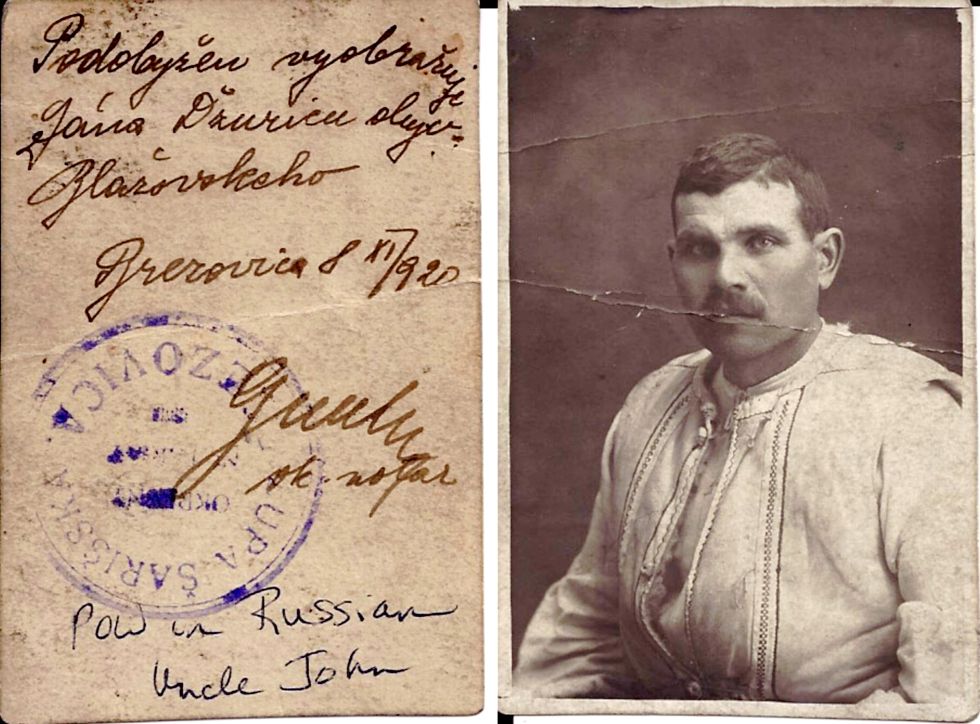 Podobyžen vyobrazuje
Jána Džuricu obyv-
Blažovskeho
Brezovica 8 XI/920
ok. notár
UPA ŠARIŠSKÁ
EZOVICA
POW in Russian
Uncle John